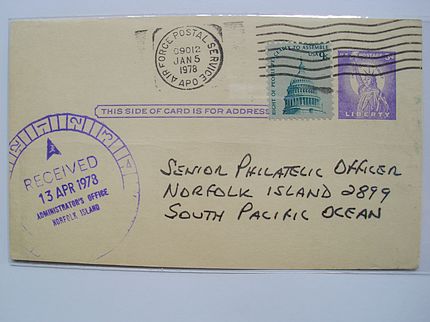 AIR FORCE POSTAL SERVICE
09012
JAN 5
1978
APO
RIGHT OF PEOPLE TO ASSEMBLE
USA 9c
LIBERTY
THIS SIDE OF CARD IS FOR ADDRESS
RECEIVED
13 APR 1978
ADMINISTRATOR'S OFFICE
NORFOLK ISLAND
SENIOR PHILATELIC OFFICER
NORFOLK ISLAND 2899
SOUTH PACIFIC OCEAN